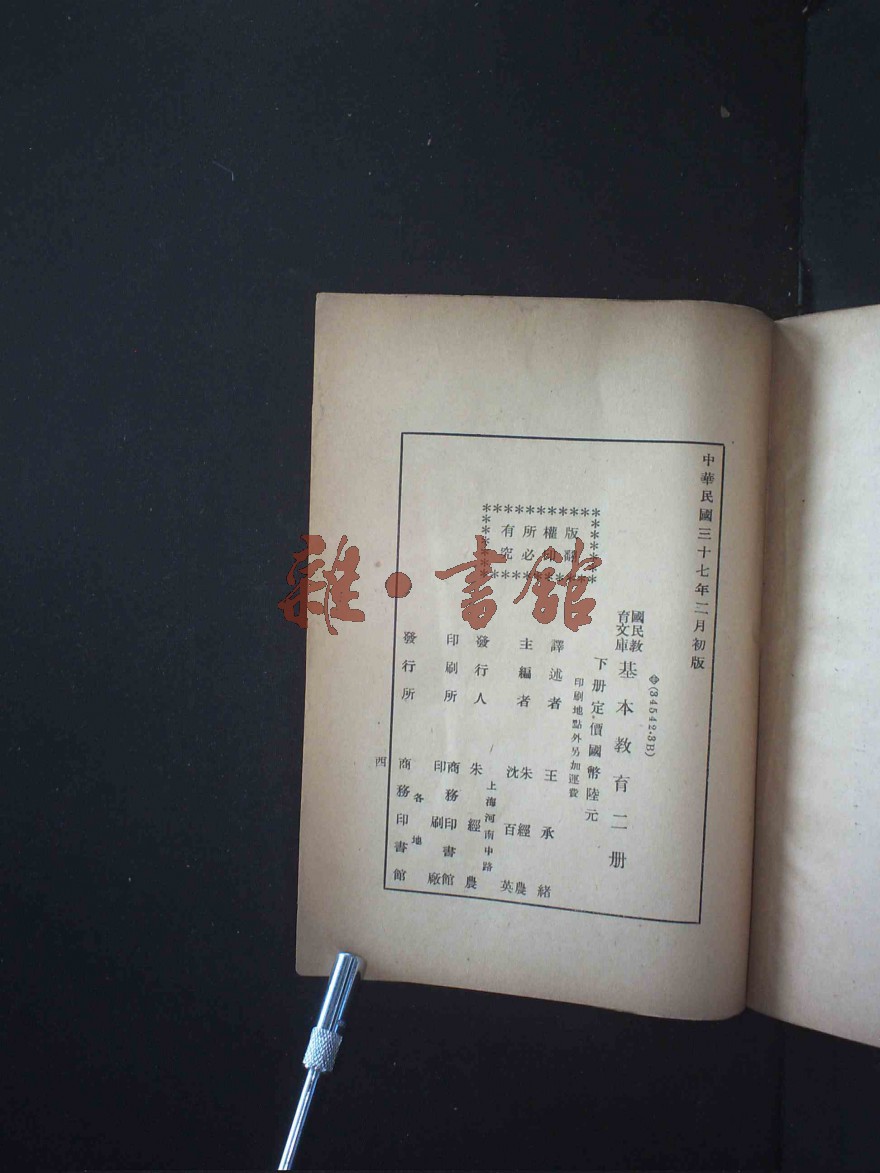 中華民國三十七年二月初版
(34542·3B)
國民教育文庫 基本教育二册
下册定價國幣陸元
印刷地點外另加運費
版權所有
翻印必究
譯述者 王承緒
主編者 朱經農 沈百英
發行人 朱經農
上海河南中路
印刷所 商務印書館印刷廠
各地
發行所 商務印書館
西
雜·書館